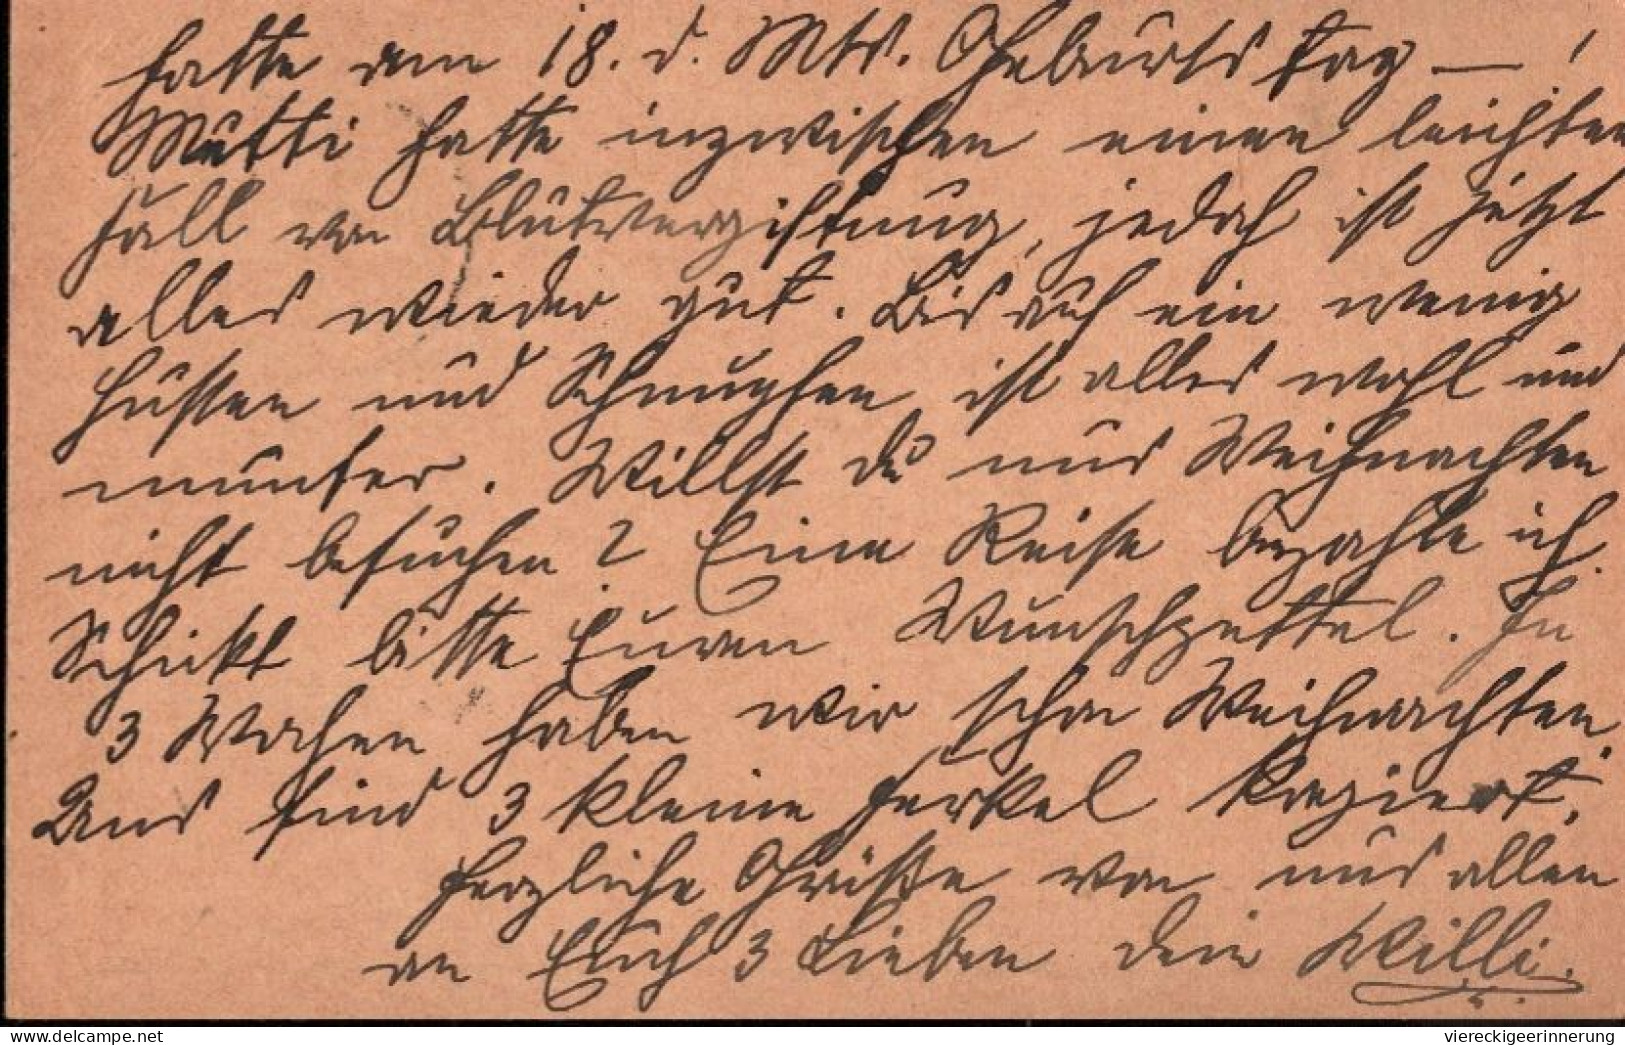 hatte am 18. d. Mts. Geburtstag — !
Mutti hatte inzwischen einen leichten
Fall von Blutvergiftung, jedoch ist jetzt
alles wieder gut. Bis auf ein wenig
Husten und Schnupfen ist alles wohl und
munter. Willst du uns Weihnachten
nicht besuchen? Eine Reise bezahle ich.
Schickt bitte Euren Wunschzettel. In
3 Wochen haben wir schon Weihnachten.
Uns sind 3 kleine Ferkel krepiert.
Herzliche Grüße von uns allen
an Euch 3 Lieben dein Willi.
delcampe.net
viereckigeerinnerung